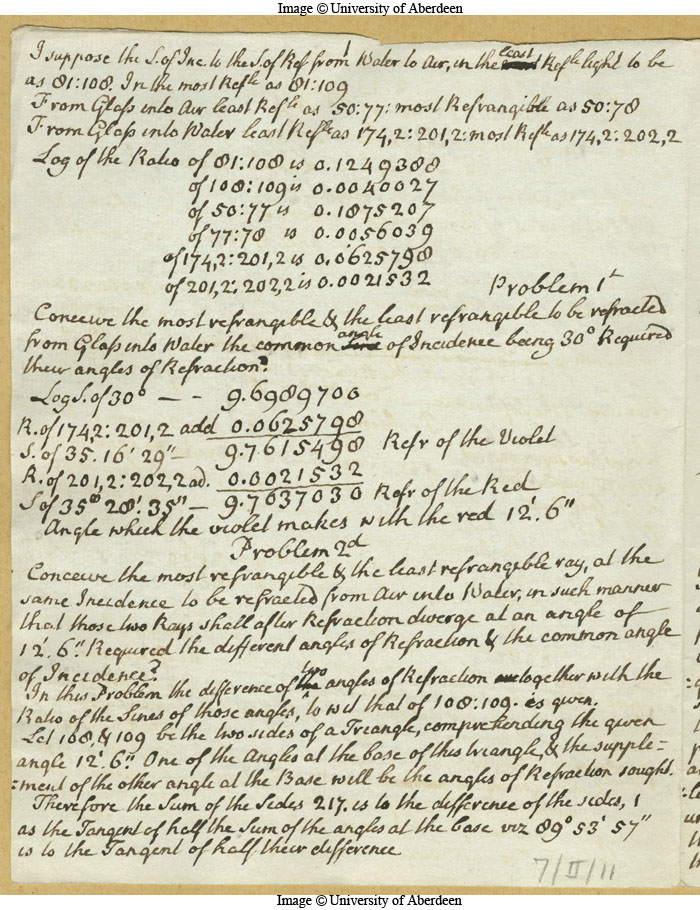 Image © University of Aberdeen
I suppose the S. of Inc. to the S. of Ref from Water to Air, in the least Refle light to be
as 81:108. In the most Refle as 81:109
From Glass into Air least Refle as 50:77: most Refrangible as 50:78
From Glass into Water least Refle as 174,2:201,2: most Refle as 174,2:202,2
Log of the Ratio of 81:108 is 0.1249388
of 108:109 is 0.0040027
of 50:77 is 0.1875207
of 77:78 is 0.0056039
of 174,2:201,2 is 0.0625798
of 201,2:202,2 is 0.0021532
Problem 1t
Conceive the most refrangible & the least refrangible to be refracted
from Glass into Water the common angle of Incidence being 30° Required
their angles of Refraction?
Log S. of 30° — – 9.6989700
R. of 174,2:201,2 add 0.0625798
S. of 35. 16' 29" – 9.7615498 Refr of the Violet
R. of 201,2:202,2 ad. 0.0021532
S of 35° 28'. 35" – 9.7637030 Refr of the Red
Angle which the violet makes with the red 12'. 6"
Problem 2d
Conceive the most refrangible & the least refrangible ray, at the
same Incidence to be refracted from Air into Water, in such manner
that those two Rays shall after Refraction diverge at an angle of
12'. 6". Required the different angles of Refraction & the common angle
of Incidence?
In this Problem the difference of two angles of Refraction together with the
Ratio of the Sines of those angles, to wit that of 108:109. is given.
Let 108, & 109 be the two sides of a Triangle, comprehending the given
angle 12'. 6". One of the Angles at the base of this triangle, & the supple=
=ment of the other angle at the Base will be the angles of Refraction sought.
Therefore the Sum of the Sides 217. is to the difference of the sides, 1
as the Tangent of half the Sum of the angles at the base viz 89° 53' 57"
is to the Tangent of half their difference
7/II/11
Image © University of Aberdeen